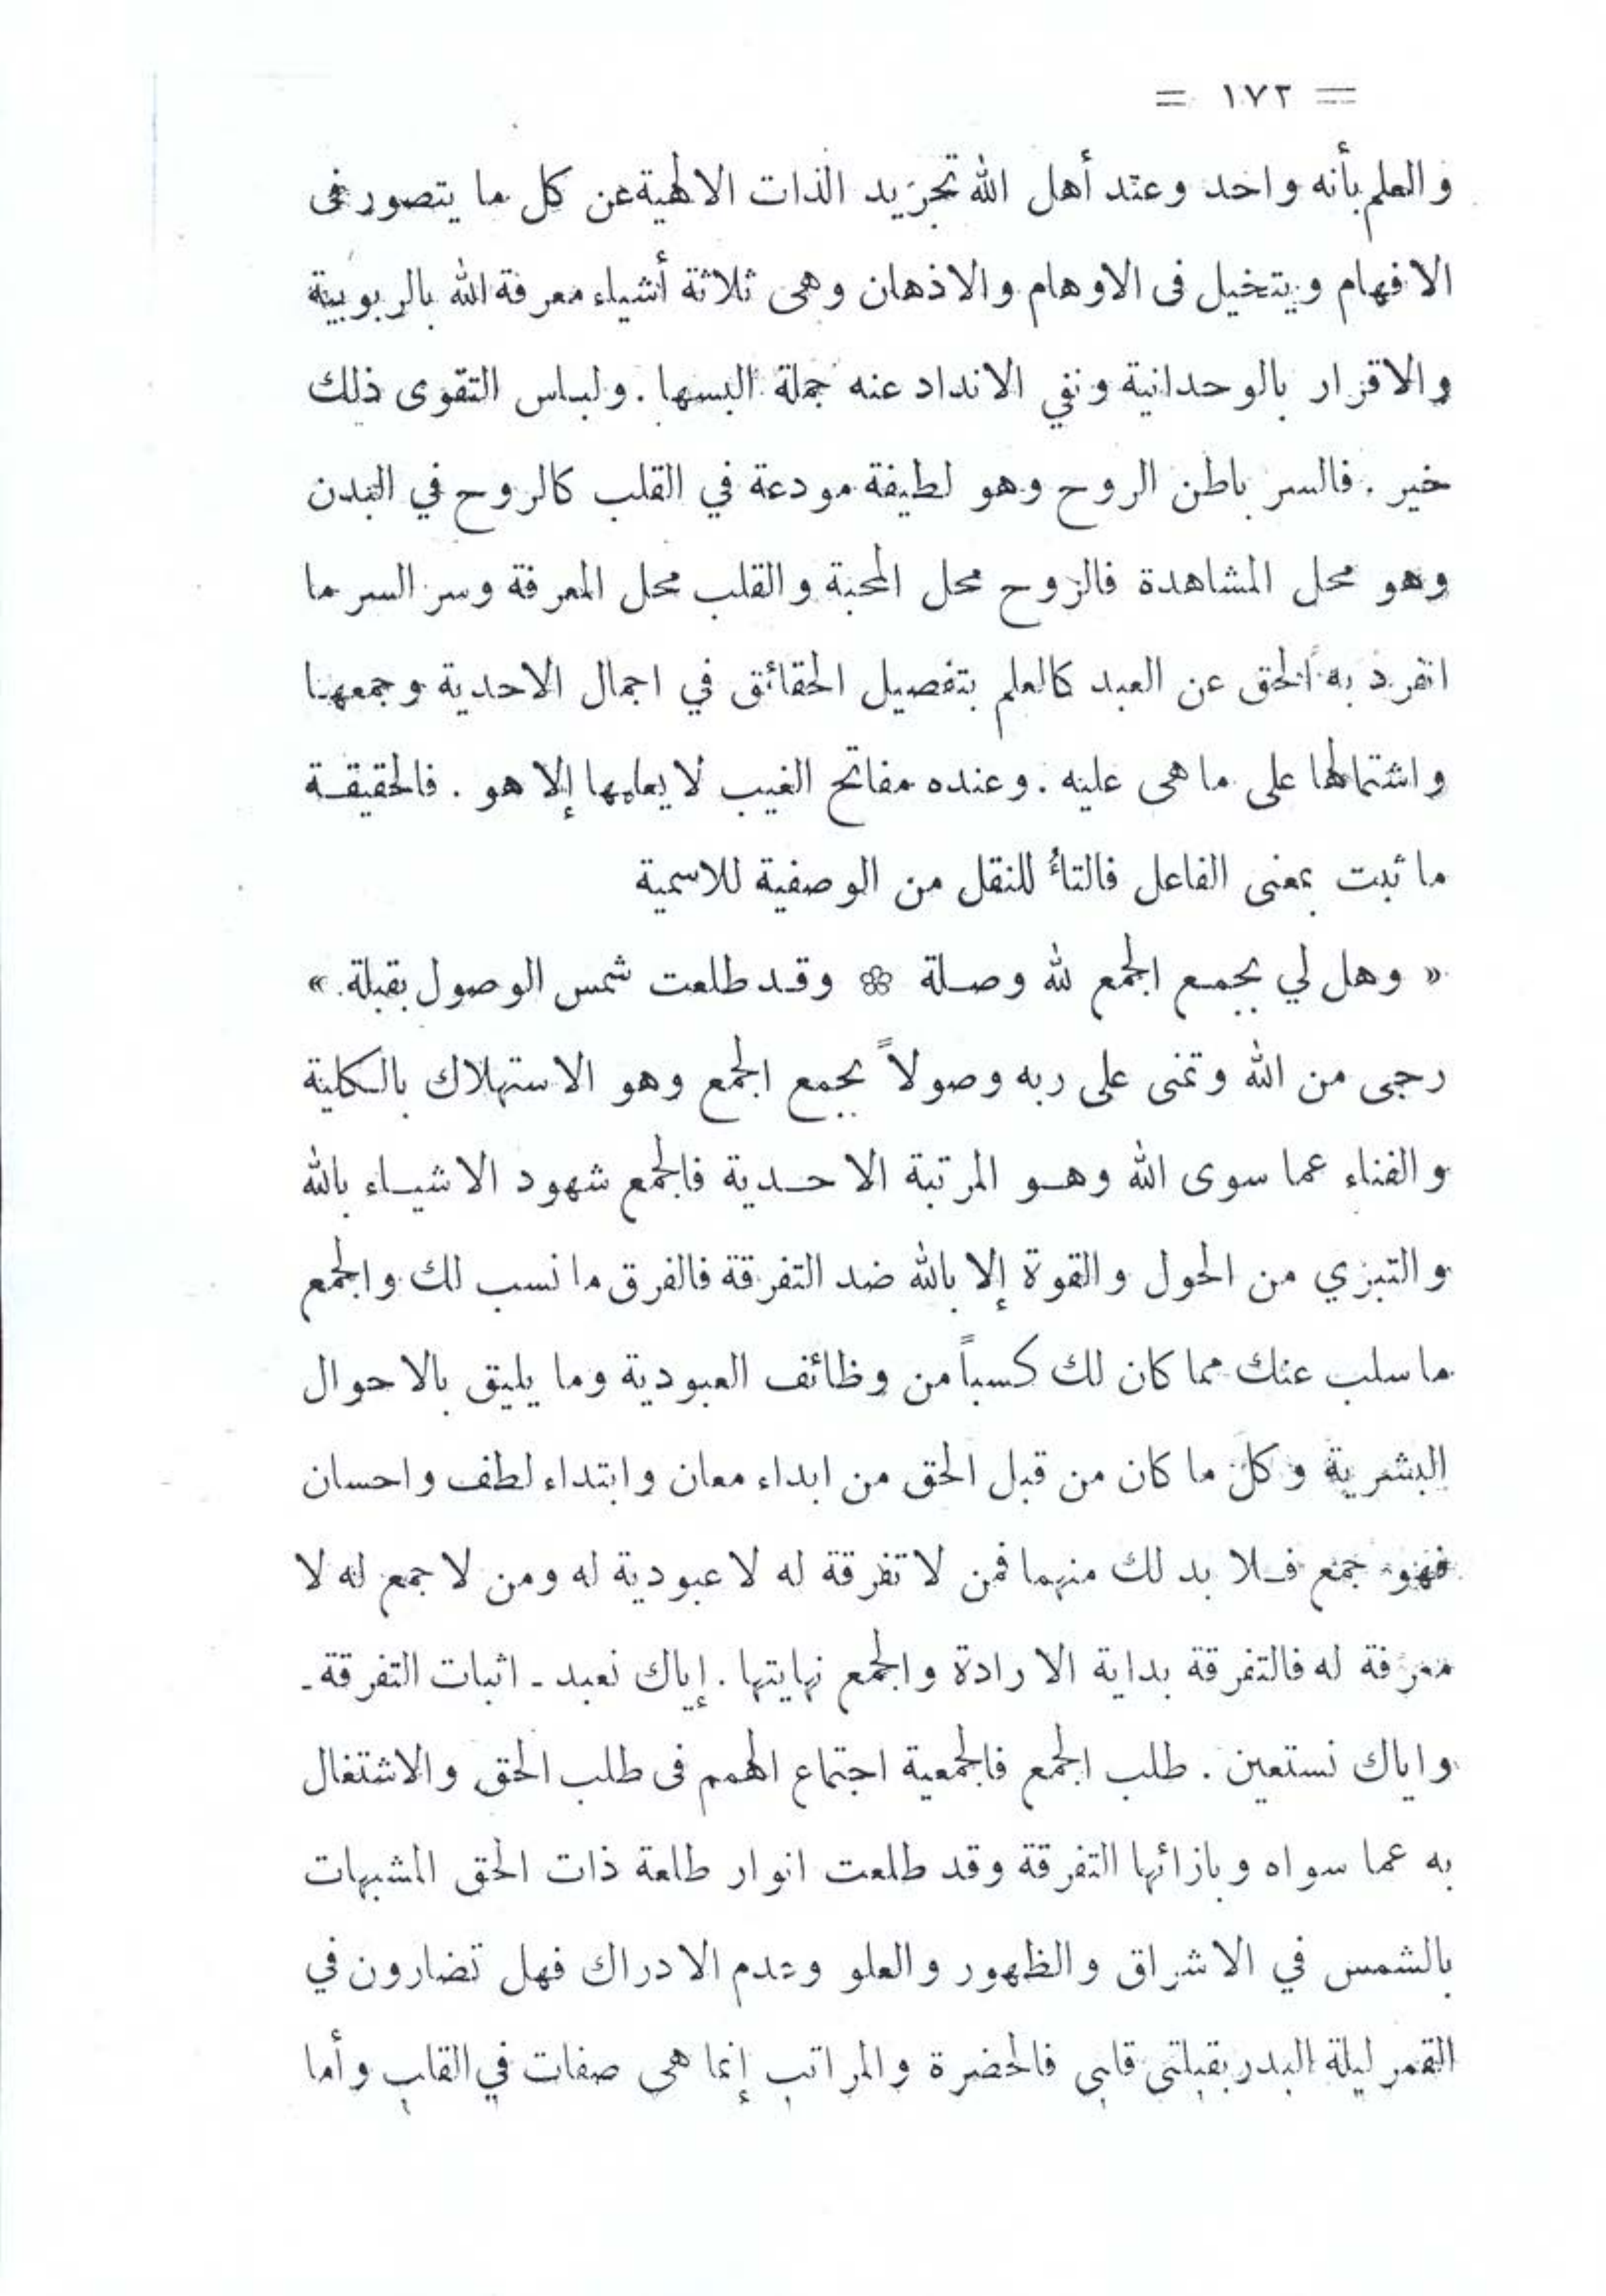 = ١٧٢ =
والعلم بأنه واحد وعند أهل الله تجريد الذات الالهية عن كل ما يتصور فى
الافهام ويتخيل فى الاوهام والاذهان وهى ثلاثة أشياء معرفة الله بالربوبية
والاقرار بالوحدانية ونفي الانداد عنه جملة البسها . ولباس التقوى ذلك
خير . فالسر باطن الروح وهو لطيفة مودعة في القلب كالروح في البدن
وهو محل المشاهدة فالروح محل المحبة والقلب محل المعرفة وسر السر ما
انفرد به الحق عن العبد كالعلم بتفصيل الحقائق في اجمال الاحدية وجمعها
واشتمالها على ما هى عليه . وعنده مفاتح الغيب لا يعلمها إلا هو . فالحقيقة
ما ثبت بمعنى الفاعل فالتأ للنقل من الوصفية للاسمية
« وهل لي بجمع الجمع لله وصلة ۞ وقد طلعت شمس الوصول بقبلة »
رجى من الله وتمنى على ربه وصولاً بجمع الجمع وهو الاستهلاك بالكلية
والفناء عما سوى الله وهو المرتبة الاحدية فالجمع شهود الاشياء بالله
والتبري من الحول والقوة إلا بالله ضد التفرقة فالفرق ما نسب لك والجمع
ما سلب عنك مما كان لك كسباً من وظائف العبودية وما يليق بالاحوال
البشرية وكل ما كان من قبل الحق من ابداء معان وابتداء لطف واحسان
فهو جمع فلا بد لك منهما فمن لا تفرقة له لا عبودية له ومن لا جمع له لا
معرفة له فالتفرقة بداية الارادة والجمع نهايتها . إياك نعبد - اثبات التفرقة -
واياك نستعين . طلب الجمع فالجمعية اجتماع الهمم فى طلب الحق والاشتغال
به عما سواه وبازائها التفرقة وقد طلعت انوار طلعة ذات الحق المشبهات
بالشمس في الاشراق والظهور والعلو وعدم الادراك فهل تضارون في
القمر ليلة البدر بقبلتى قلبى فالحضرة والمراتب إنما هى صفات في القلب وأما